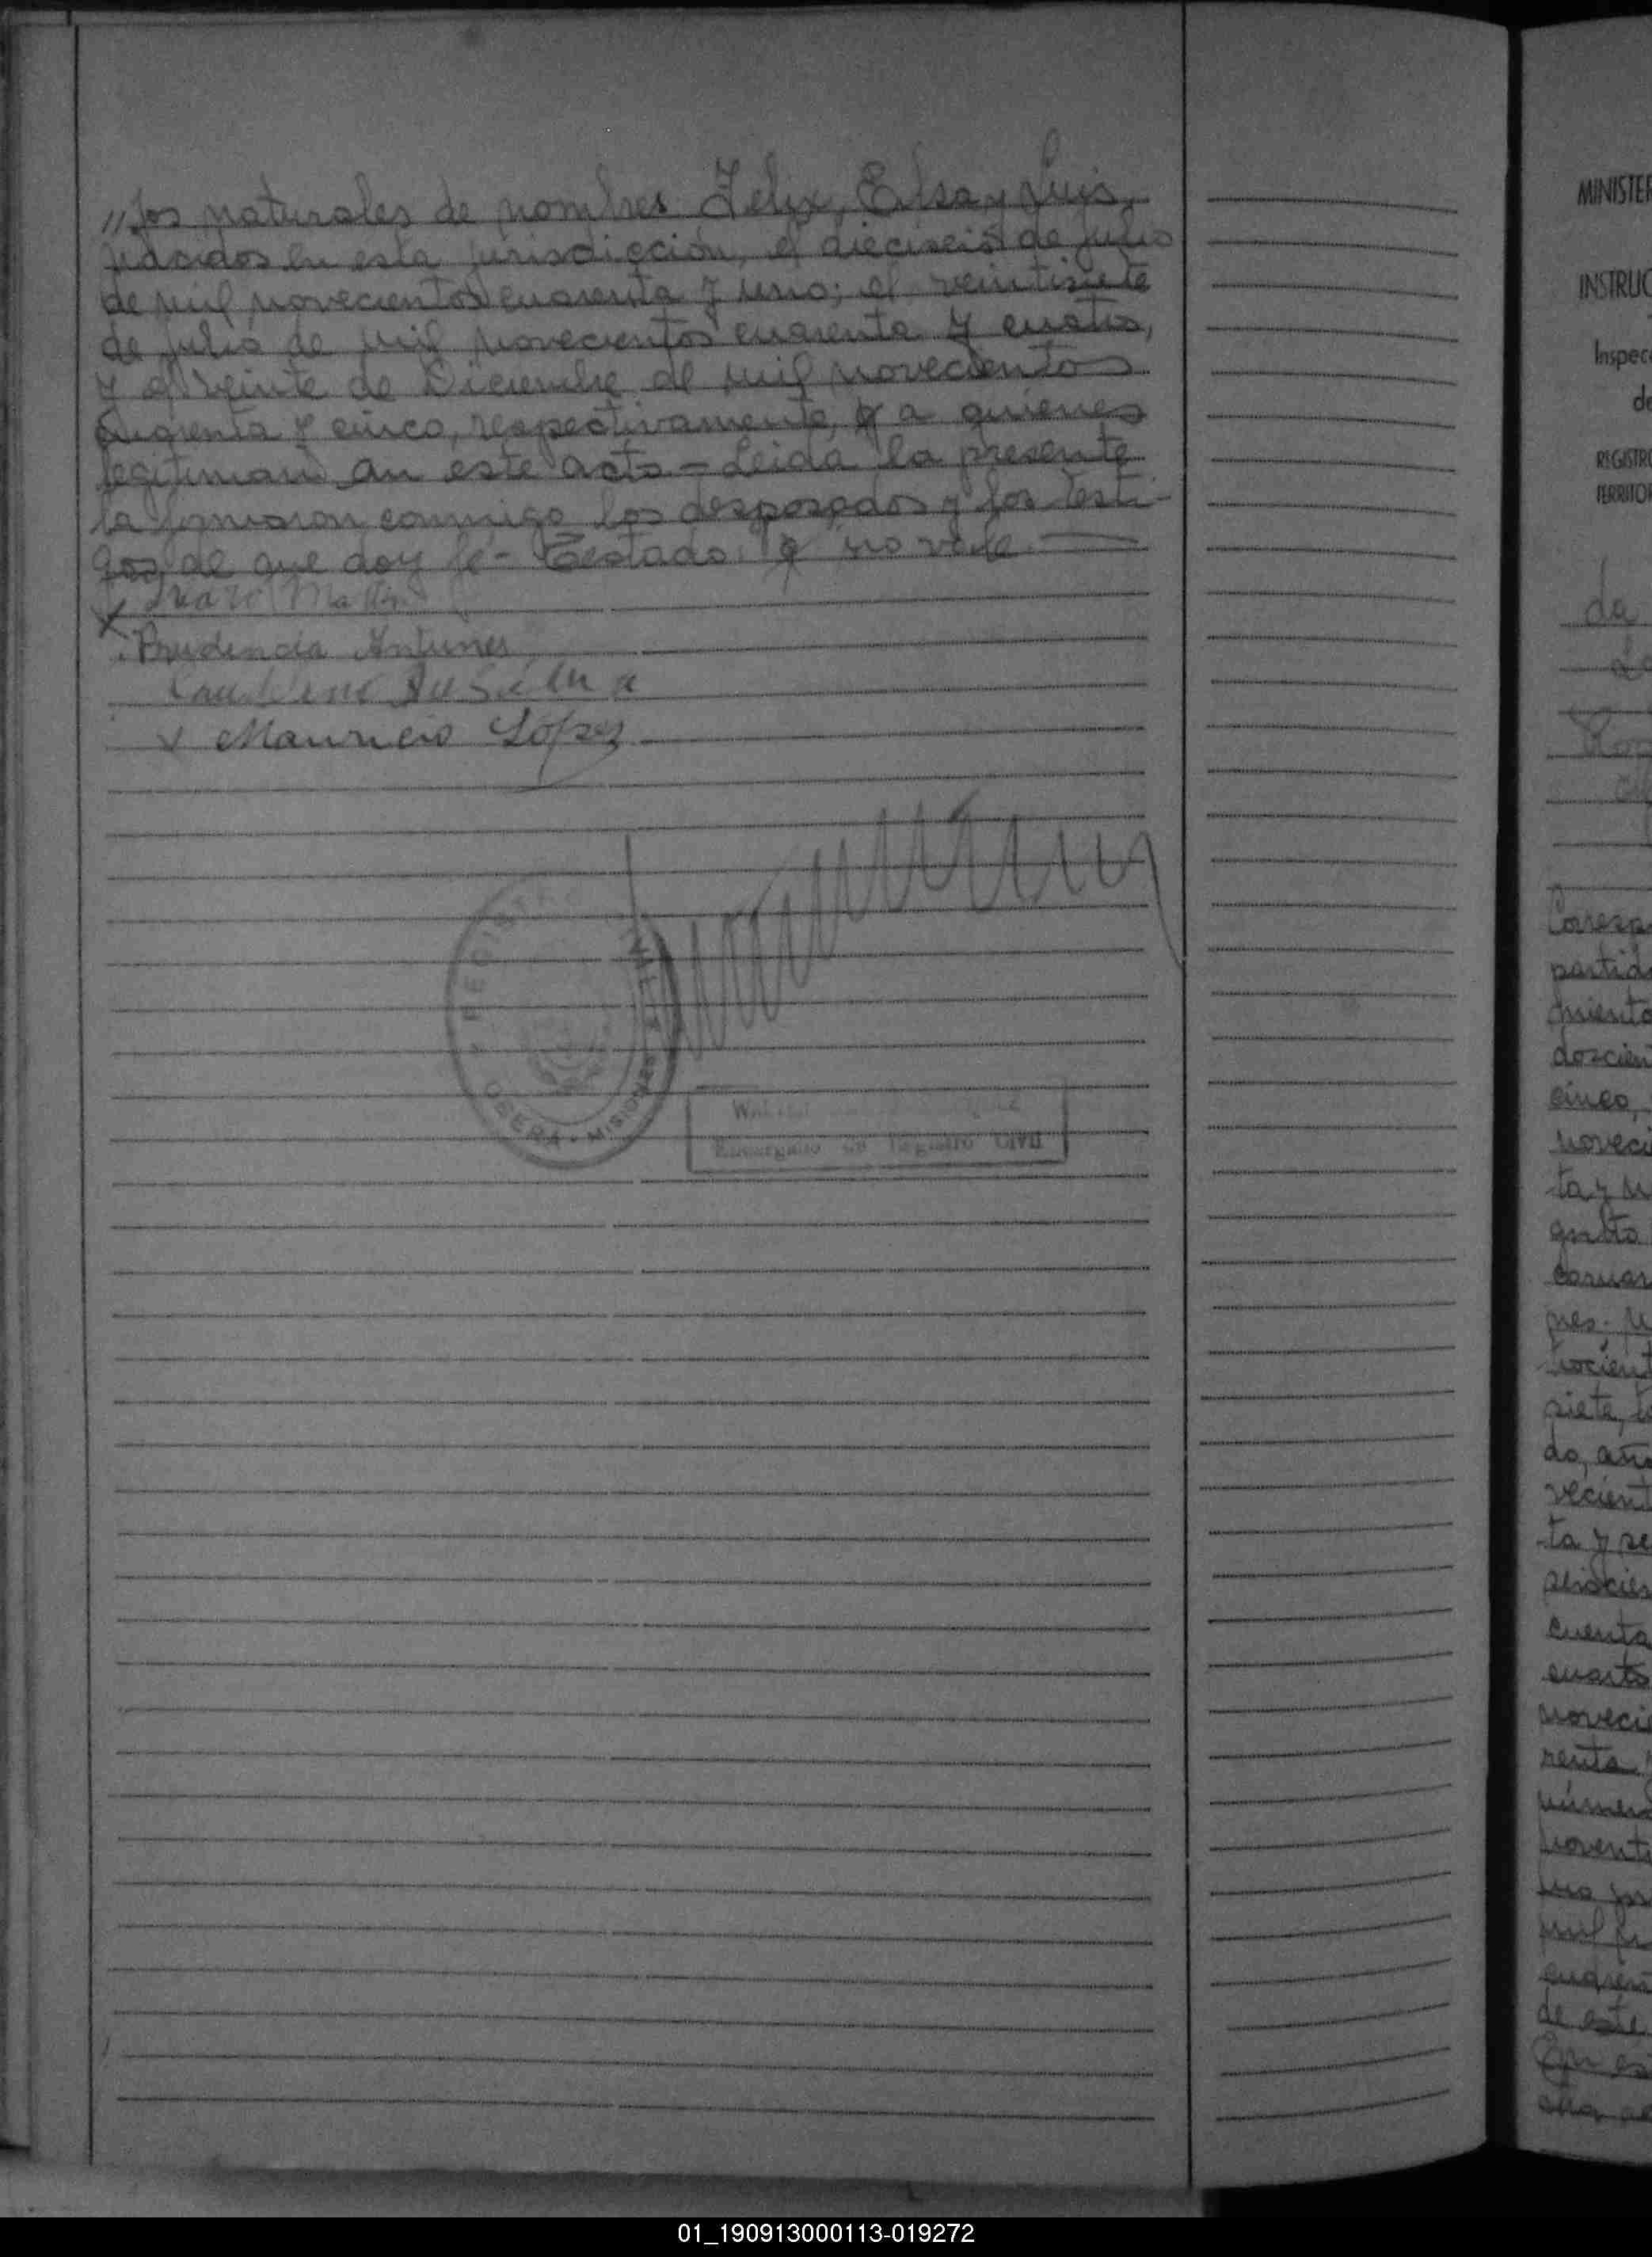 "jos naturales de nombres Felix, Elsa y Luis,
nacidos en esta jurisdicción, el dieciseis de julio
de mil novecientos cuarenta y uno; el veintisiete
de julio de mil novecientos cuarenta y cuatro,
y el veinte de Diciembre de mil novecientos
cuarenta y cinco, respectivamente, y a quienes
legitiman en este acto = Leida la presente
la firmaron conmigo los desposados y los testi-
gos, de que doy fé - Testado: y no vale.
Prudencia Antunes
Da Silva
Mauricio López
REGISTRO CIVIL
OBERA - MISIONES
Encargado de Registro Civil
MINISTER
INSTRUC
Inspec
de
REGISTRO
TERRITOR
da
Corresp
partid
miento
doscien
cinco,
noveci
ta y n
grito
carnar
nes; n
trocient
siete, 
do, año
vecient
ta y se
cuenta
cuarto
noveci
renta
número
novent
cuaren
de este
En es
01_190913000113-019272